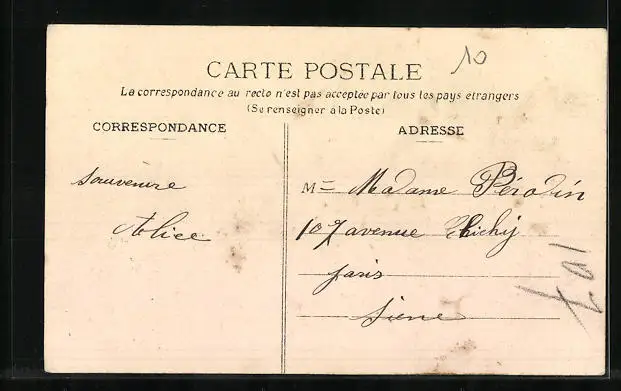 10
CARTE POSTALE
La correspondance au recto n'est pas acceptée par tous les pays etrangers
(Se renseigner à la Poste)
CORRESPONDANCE
ADRESSE
souvenire
Alice
M Madame Pérodin
107 avenue Clichy
paris
Siene
107